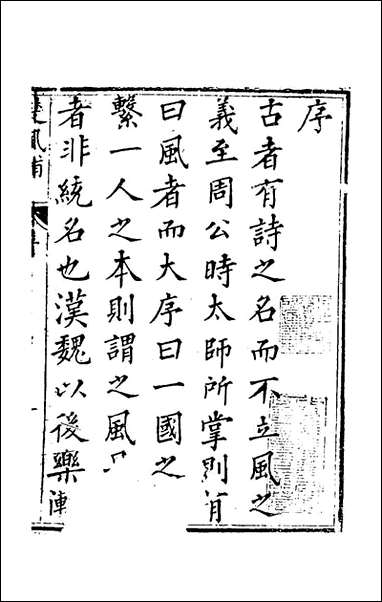 序
古者有詩之名而不立風之
義至周公時太師所掌則有
曰風者而大序曰一國之
繫一人之本則謂之風
者非統名也漢魏以後樂
風補